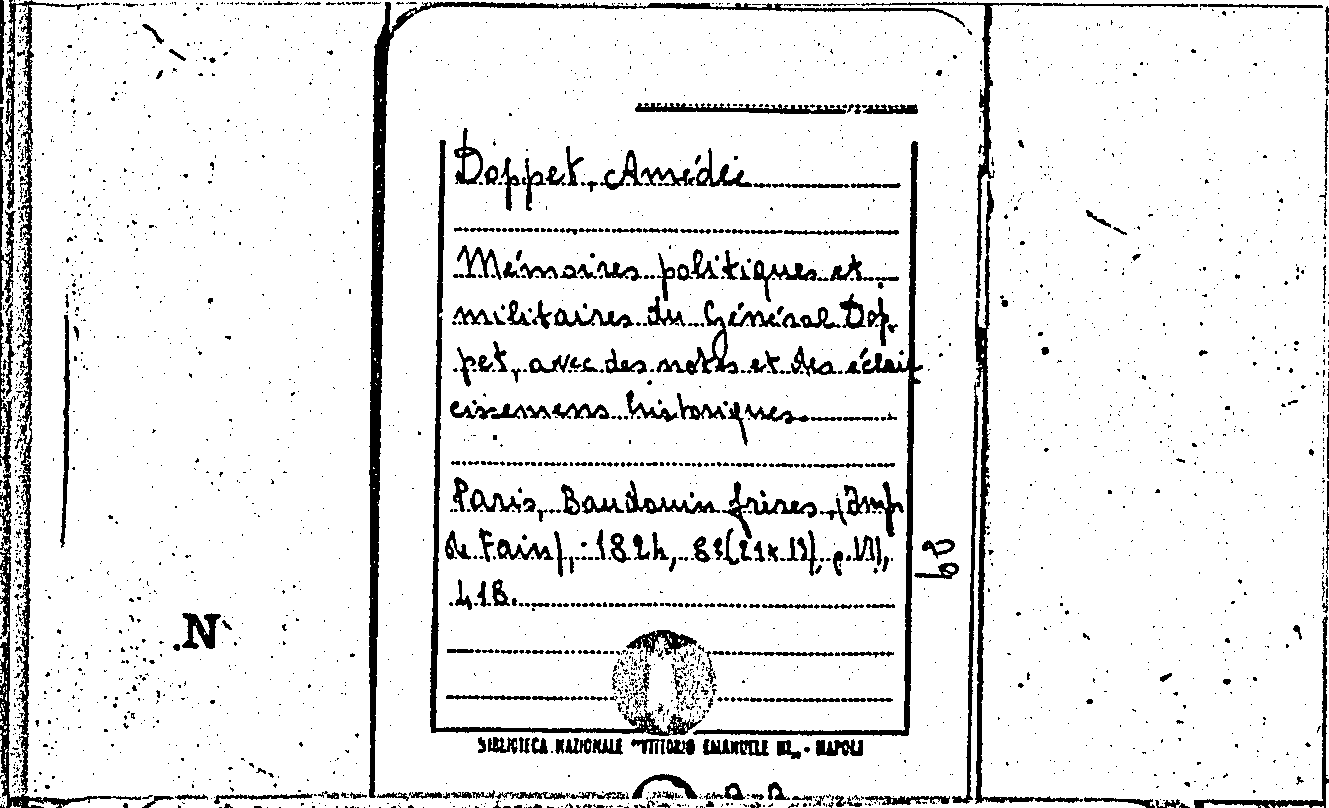 Doppet, Amédée
Mémoires politiques et
militaires du Général Dop-
pet, avec des notes et des éclair-
cissemens historiques.
Paris, Baudouin frères, (Imp
de Fain), 1824, 8º (21x13), p. VIII,
418.
62
N
BIBLIOTECA NAZIONALE "VITTORIO EMANUELE III" - NAPOLI